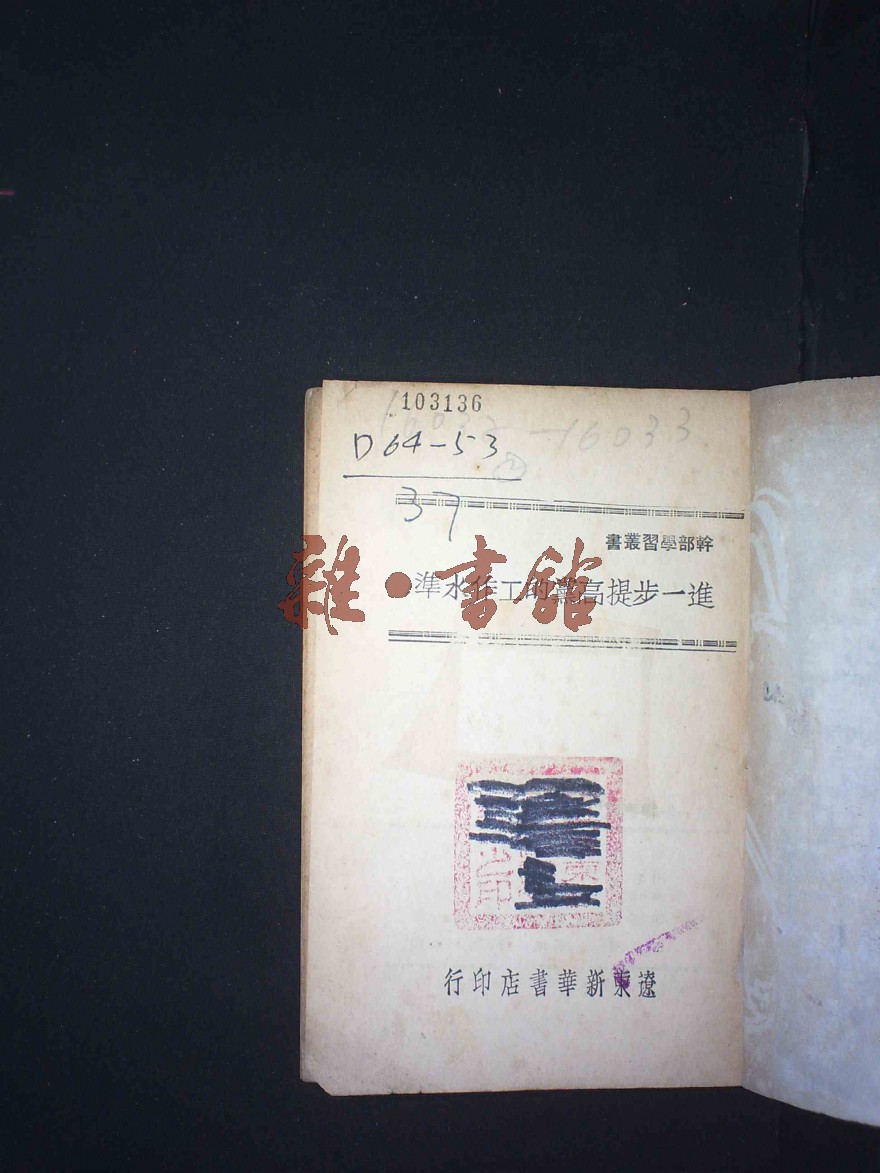 103136
16033
D64-53
37
幹部學習叢書
進一步提高黨的工作水準
雜·書館
遼東新華書店印行